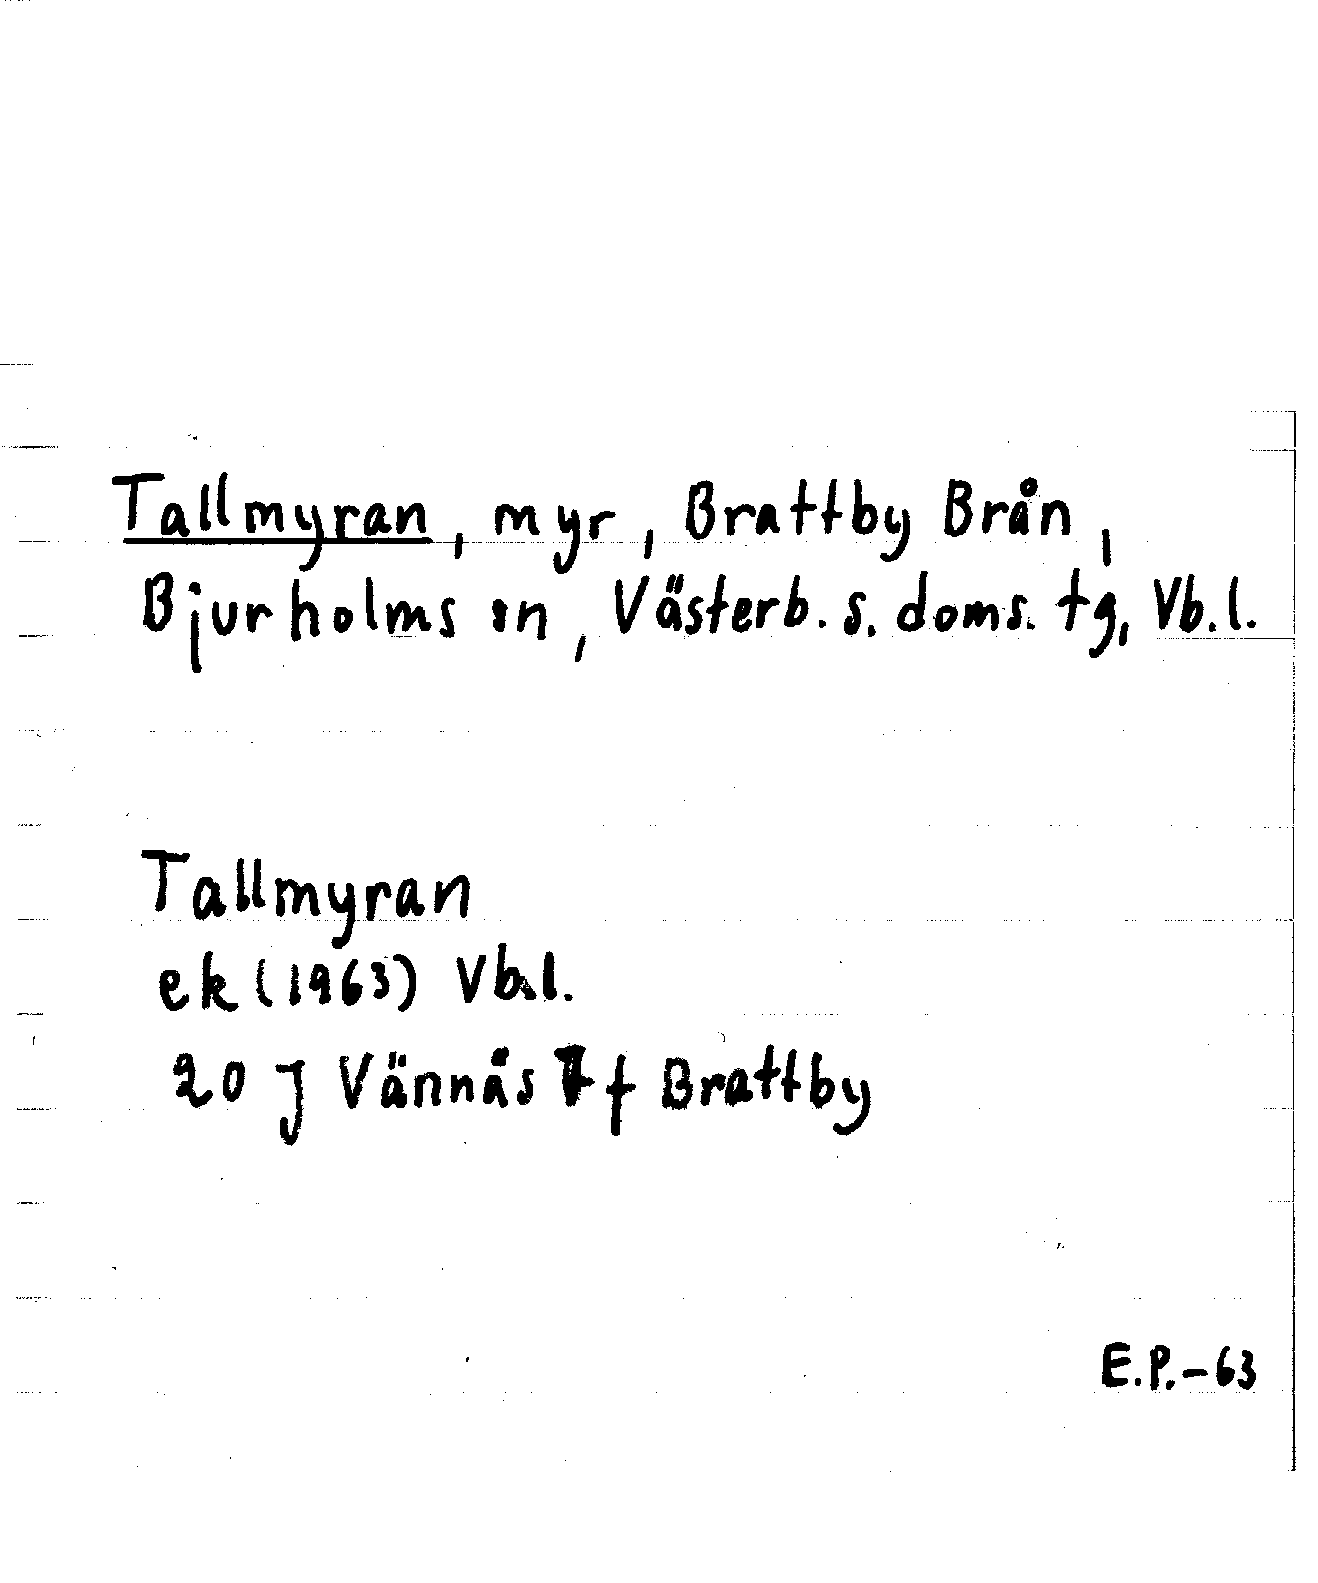 Tallmyran, myr, Brattby Brån,
Bjurholms sn, Västerb. s. doms. tg, Vb.l.
Tallmyran
ek (1963) Vb.l.
20 J Vännäs f Brattby
E.P.-63